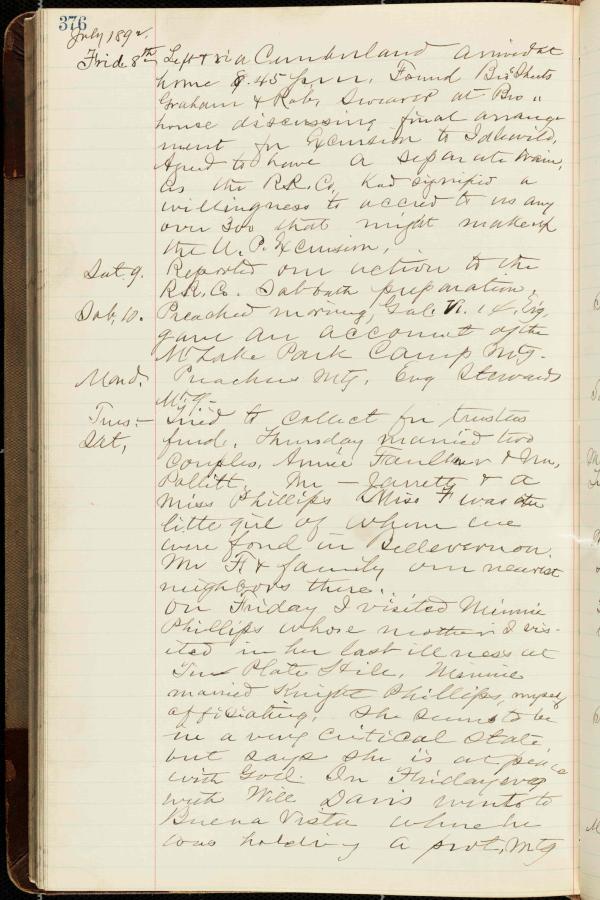 376
July 1892.
Frid. 8th Left & via Cumberland arrived at
home 8.45 p.m. Found Bro Sheets
Graham & Robt. Swearer at Bro "
house discussing final arrange
ment for Excursion to Idlewild,
Agreed to have a separate train,
as the R.R. Co, had signified a
willingness to accred to us any
over 300 that might makeup
the U. P. Excursion,
Sat. 9. Reported our action to the
R.R. Co. Sabbath preparation.
Sab, 10. Preached morning, Gal. VI. 14. Evg,
gave an account of the
Mt Lake Park Camp Mtg.
Mond. Preachers Mtg, Evg Stewards
Mtg.
Tues:- Tried to collect for trustees
Sat, fund. Thursday married two
couples, Annie Faulkner & Wm,
Pollitt, Mr - Jarrett & a
Miss Phillips Miss F was the
little girl of whom we
were fond in Bellevernon.
Mr F. & family our nearest
neighbors there..
On Friday I visited Minnie
Phillips whose mother I vis-
ited in her last illness at
Tin Plate Hill. Minnie
married Knight Phillips, myself
officiating. She seems to be
in a very critical state
but says she is at peace
with God. On Friday evg
with Will Davis went to
Buena Vista where he
was holding a prot, Mtg